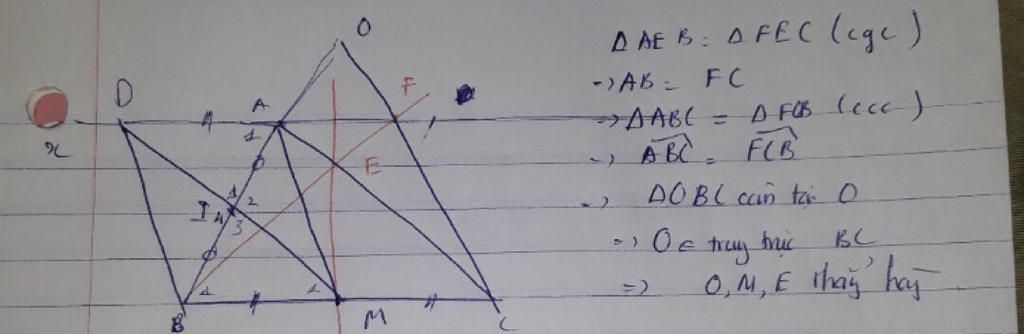 O
D
A
F
x
1
E
I
1
2
4
3
1
1
B
M
C
Δ AEB = Δ FEC (cgc)
-> AB = FC
-> ΔABC = ΔFCB (ccc)
-> ABC = FCB
-> ΔOBC cân tại O
=> O ∈ trung trực BC
=> O, M, E thẳng hàng